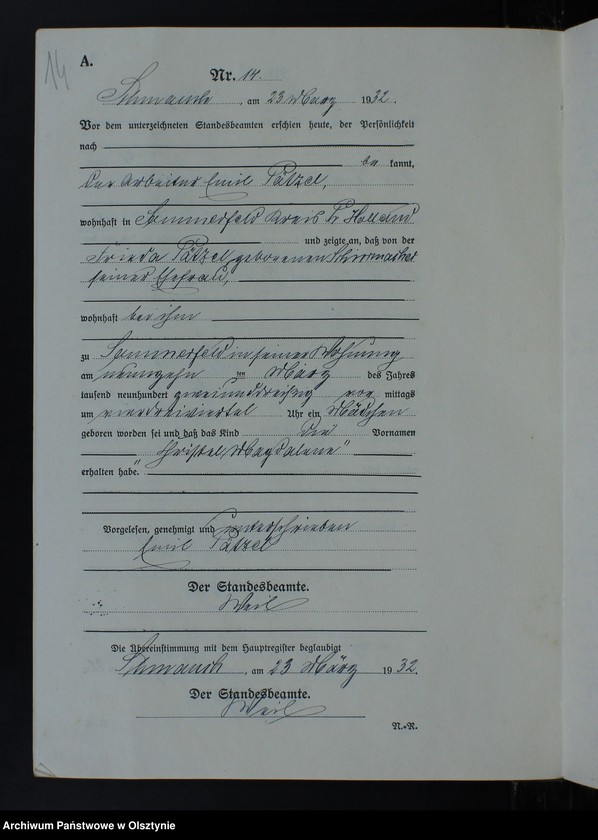 14
A.
Nr. 14.
Schmauch, am 23 März 1932.
Vor dem unterzeichneten Standesbeamten erschien heute, der Persönlichkeit
nach
be kannt,
der Arbeiter Emil Pätzel,
wohnhaft in Sommerfeld Kreis Pr Holland
und zeigte an, daß von der
Frieda Pätzel geborenen Schirrmacher
seiner Ehefrau,
wohnhaft bei ihm
zu Sommerfeld in seiner Wohnung
am neunzehn ten März des Jahres
tausend neunhundert zweiunddreißig vor mittags
um vierdreiviertel Uhr ein Mädchen
geboren worden sei und daß das Kind die Vornamen
"Christel, Magdalene"
erhalten habe.
Vorgelesen, genehmigt und unterschrieben
Emil Pätzel
Der Standesbeamte.
Weil
Die Übereinstimmung mit dem Hauptregister beglaubigt
Schmauch, am 23 März 1932.
Der Standesbeamte.
Weil
N.-R.
Archiwum Państwowe w Olsztynie